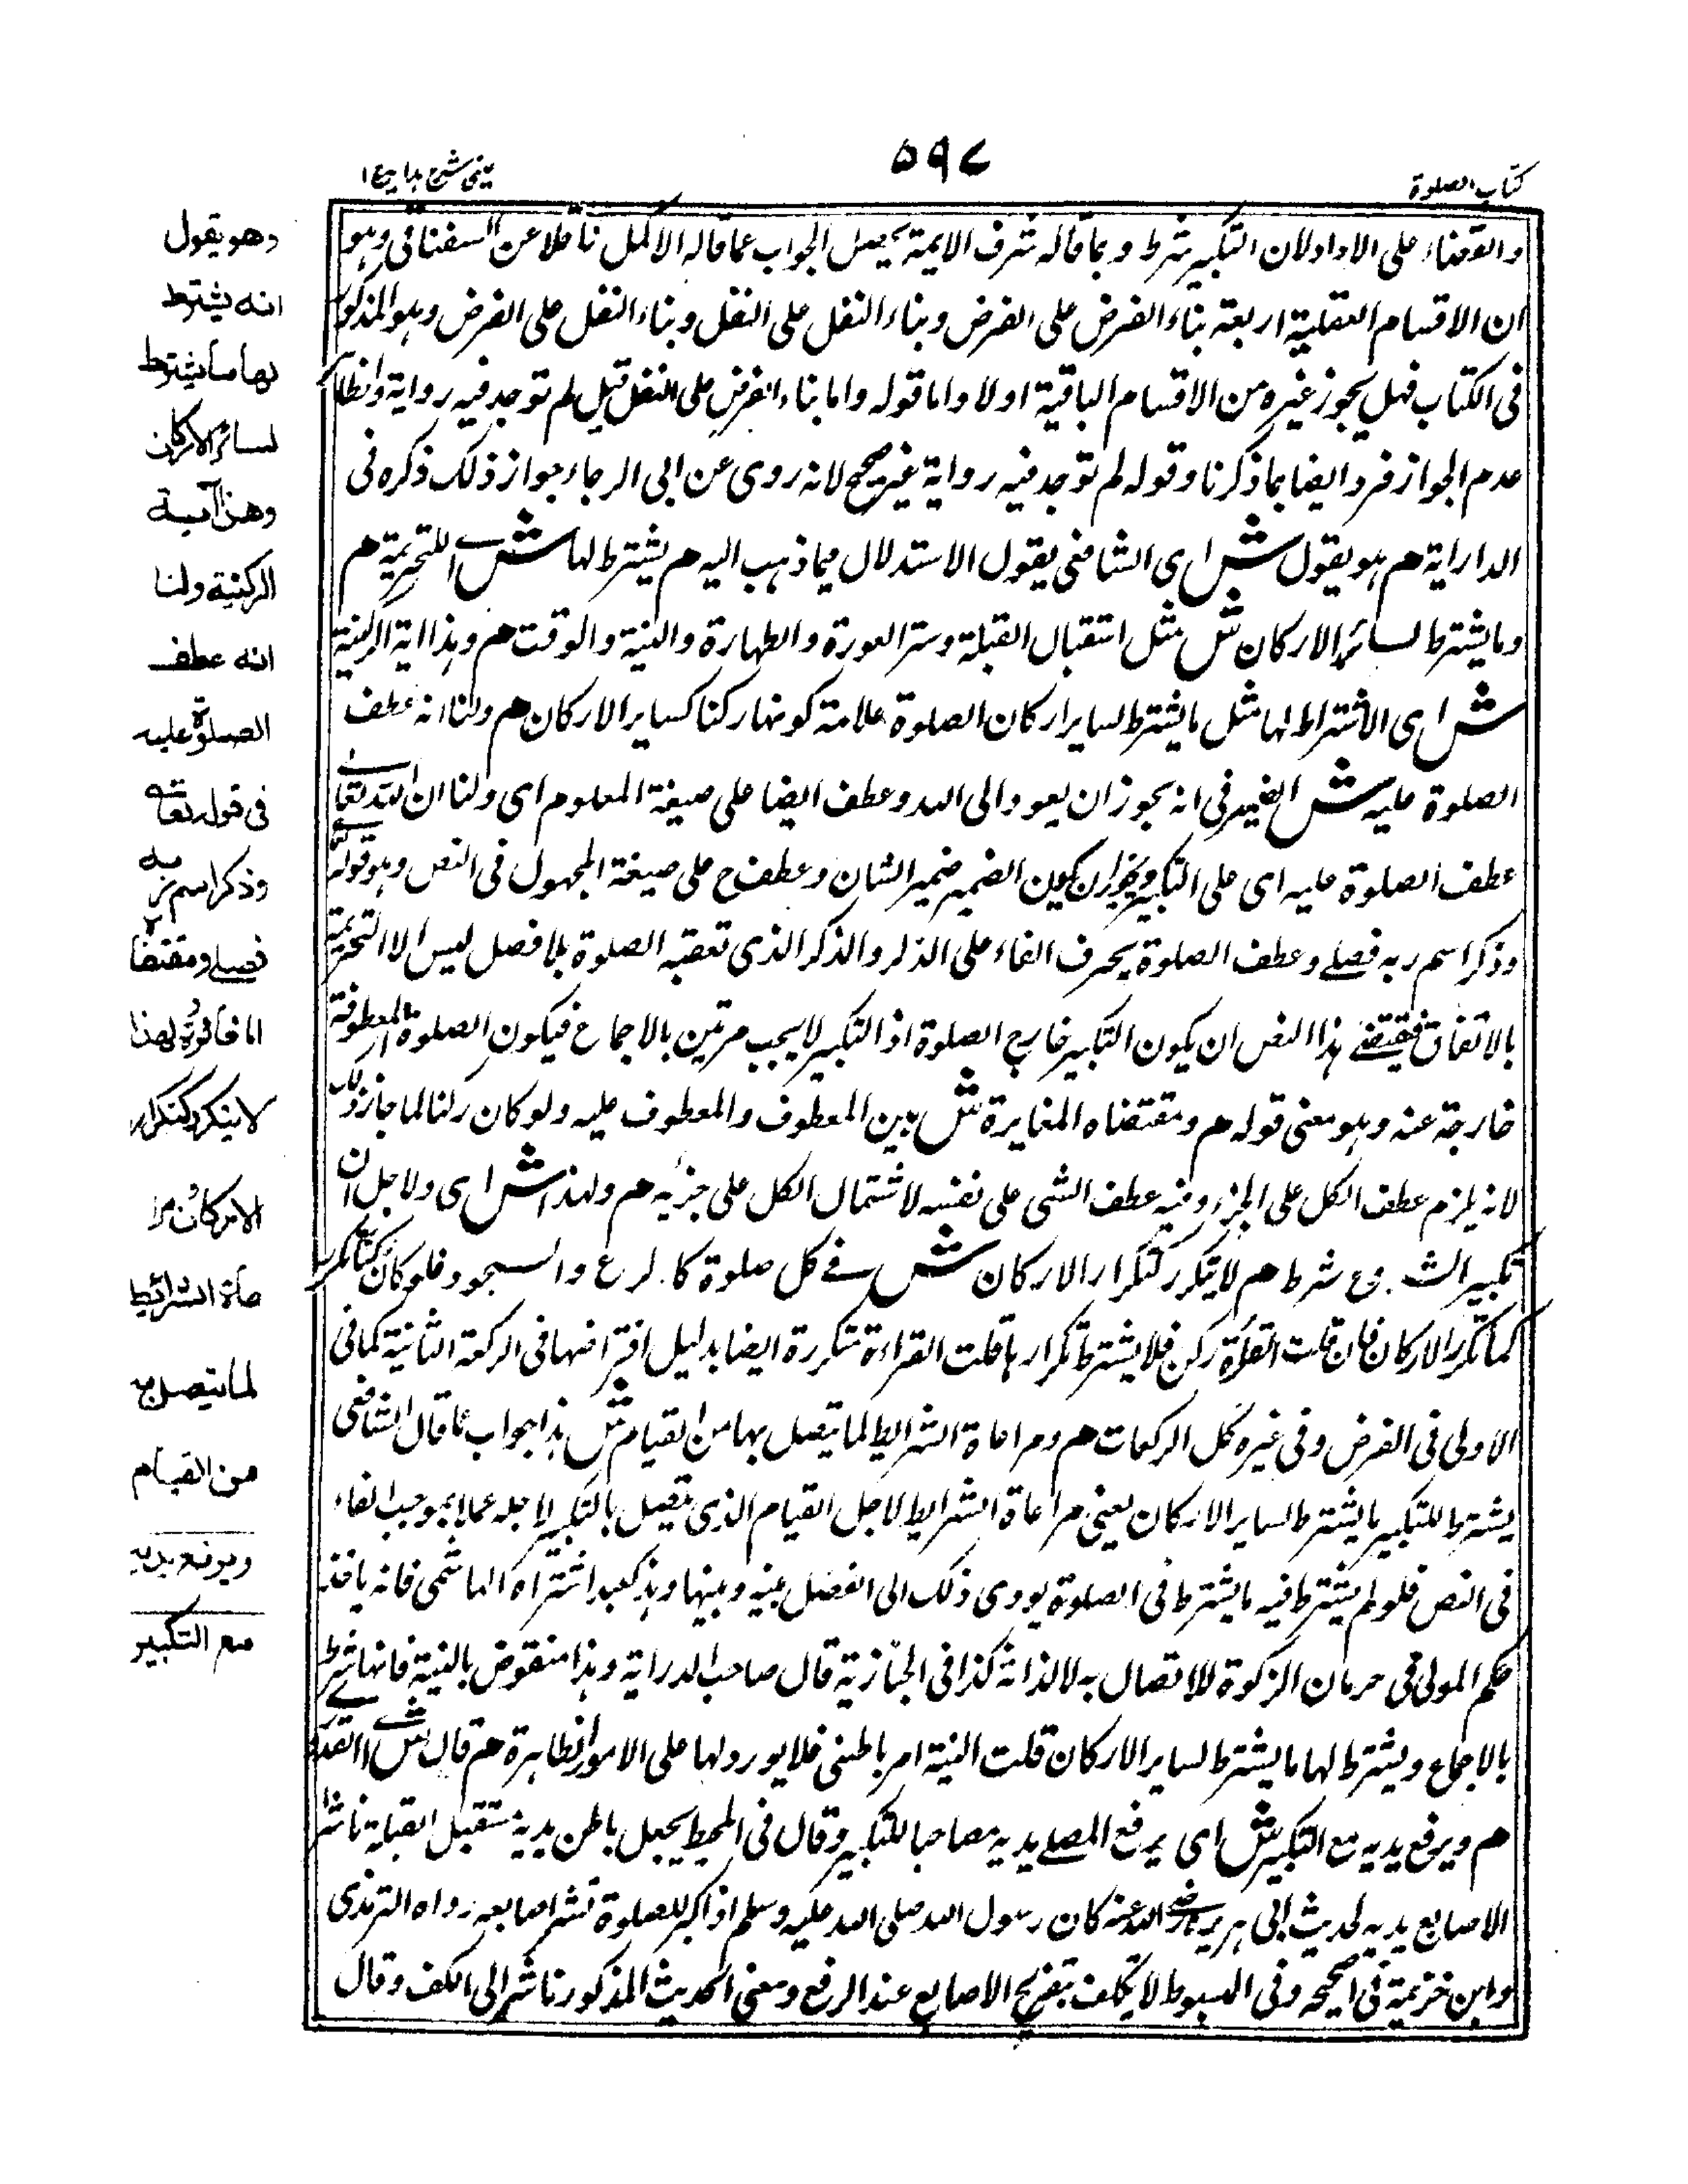 كتاب الصلوة
٥٩٧
عینی شرح ہدایہ ج ١
والقضاء على الاداء ولان التكبير شرط وبما قاله شرف الايمة يحصل الجواب عما قاله الاكمل ناقلا عن السغناقى وهو
ان الاقسام العقلية اربعة بناء الفرض على الفرض وبناء النفل على النفل وبناء النفل على الفرض وهو المذكور
فى الكتاب فهل يجوز غيره من الاقسام الباقية اولا واما قوله واما بناء الفرض على النفل قيل لم توجد فيه رواية والظاهر
عدم الجواز فرد ايضا بما ذكرنا وقوله لم توجد فيه رواية غير صحيح لانه روى عن ابى الرجاء جواز ذلك ذكره فى
الدراية هم هو يقول ش اى الشافعى يقول الاستدلال فيما ذهب اليه هم يشترط لها ش اے للتحريمة هم
وما يشترط لسائر الاركان ش مثل استقبال القبلة وستر العورة والطهارة والنية والوقت هم وهذا اية الركنية
ش اى الاشتراط لها مثل ما يشترط لساير اركان الصلوة علامة كونها ركنا كساير الاركان هم ولنا انه عطف
الصلوة عليه ش الضمير فى انه يجوز ان يعود الى الله وعطف ايضا على صيغة المعلوم اى ولنا ان الله تعالے
عطف الصلوة عليه اى على التكبير ويجوز ان يكون الضمير ضمير الشان وعطف ح على صيغة المجهول فى النص وهو قوله تعالے
وذكر اسم ربه فصلے وعطف الصلوة بحرف الفاء على الذكر والذكر الذى تعقبه الصلوة بلا فصل ليس الا التحريمة
بالاتفاق فيقتضے هذا النص ان يكون التكبير خارج الصلوة اذ التكبير لا يجب مرتين بالاجماع فيكون الصلوة المعطوفة
خارجة عنه وهو معنى قوله هم ومقتضاه المغايرة ش بين المعطوف والمعطوف عليه ولو كان ركنا لما جاز ذلك
لانه يلزم عطف الكل على الجزء وفيه عطف الشى على نفسه لاشتمال الكل على جزئه هم ولهذا ش اى ولاجل ان
تكبير الشروع شرط هم لا يتكرر كتكرار الاركان ش فے كل صلوة كالركوع والسجود فلو كان ركنا لتكرر
كما تكرر الاركان فان قلت القراءة ركن فلا يشترط تكرارها قلت القراءة متكررة ايضا بدليل افتراضها فى الركعة الثانية كما فى
الاولى فى الفرض وفى غيره كل الركعات هم ومراعاة الشرايط لما يتصل بها من القيام ش هذا جواب عما قال الشافعى
يشترط للتكبير ما يشترط لساير الاركان يعنى مراعاة الشرايط لاجل القيام الذى يتصل بالتكبير لاجله عملا بموجب الفاء
فى النص فلو لم يشترط فيه ما يشترط فى الصلوة يودى ذلك الى الفصل بينه وبينها وهذا كعبد اشتراه الهاشمى فانه ياخذ
حكم المولى فى حرمان الزكوة للاتصال به لا لذاته كذا فى الخبازية قال صاحب الدراية وهذا منقوض بالنية فانها شرط
بالاجماع ويشترط لها ما يشترط لساير الاركان قلت النية امر باطنى فلا يورد لها على الامور الظاهرة هم قال ش اے القدورے
هم ويرفع يديه مع التكبير ش اى يرفع المصلے يديه مصاحبا للتكبير وقال فى المحيط يجعل باطن يديه مستقبل القبلة ناشرا
الاصابع يديه لحديث ابى هريرة رضى الله عنه كان رسول الله صلى الله عليه وسلم اذا كبر للصلوة نشر اصابعه رواه الترمذى
وابن خزيمة فى صحيحه وفى المبسوط لا يتكلف بتفريج الاصابع عند الرفع ومعنى الحديث المذكور ناشرا الى الكف وقال
وهو يقول
انه يشترط
لها ما يشترط
لسائر الاركان
وهذا آية
الركنية ولنا
انه عطف
الصلوة عليه
فى قوله تعالى
وذكر اسم ربه
فصلے ومقتضا
المغائرة ولهذا
لا يتكرر كتكرار
الاركان ومرا
عاة الشرائط
لما يتصل به
من القيام
ويرفع يديه
مع التكبير